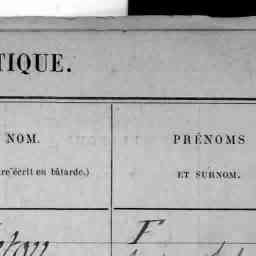 TIQUE.
NOM.
PRÉNOMS
re écrit en bâtarde.)
ET SURNOM.
F